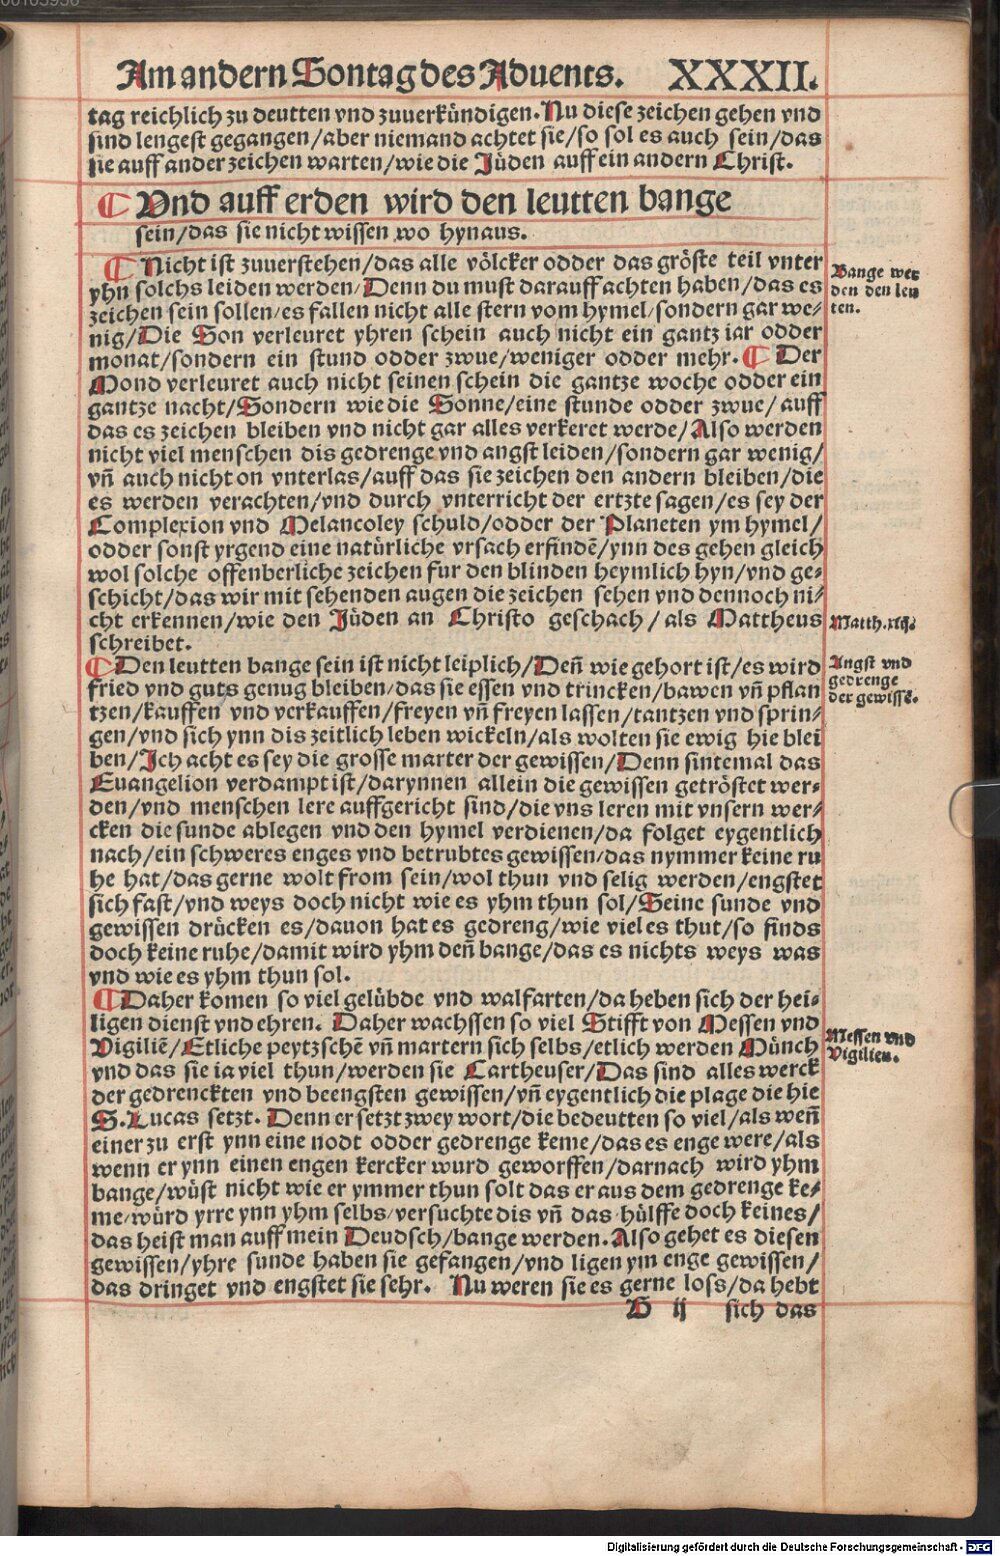 Am andern Sontag des Aduents. XXXII.
tag reichlich zu deutten vnd zuuerkündigen. Nu diese zeichen gehen vnd
sind lengest gegangen/aber niemand achtet sie/so sol es auch sein/das
sie auff ander zeichen warten/wie die Jüden auff ein andern Christ.
¶ Vnd auff erden wird den leutten bange
sein/das sie nicht wissen wo hynaus.
¶ Nicht ist zuuerstehen/das alle völcker odder das gröste teil vnter
yhn solchs leiden werden/Denn du must darauff achten haben/das es
zeichen sein sollen/es fallen nicht alle stern vom hymel/sondern gar we-
nig/Die Son verleuret yhren schein auch nicht ein gantz iar odder
monat/sondern ein stund odder zwue/weniger odder mehr. ¶ Der
Mond verleuret auch nicht seinen schein die gantze woche odder ein
gantze nacht/Sondern wie die Sonne/eine stunde odder zwue/auff
das es zeichen bleiben vnd nicht gar alles verkeret werde/Also werden
nicht viel menschen dis gedrenge vnd angst leiden/sondern gar wenig/
vn̄ auch nicht on vnterlas/auff das sie zeichen den andern bleiben/die
es werden verachten/vnd durch vnterricht der ertzte sagen/es sey der
Complexion vnd Melancoley schuld/odder der Planeten ym hymel/
odder sonst yrgend eine natürliche vrsach erfindē/ynn des gehen gleich
wol solche offenberliche zeichen fur den blinden heymlich hyn/vnd ge-
schicht/das wir mit sehenden augen die zeichen sehen vnd dennoch ni-
cht erkennen/wie den Jüden an Christo geschach/als Mattheus
schreibet.
¶ Den leutten bange sein ist nicht leiplich/Den̄ wie gehort ist/es wird
fried vnd guts genug bleiben/das sie essen vnd trincken/bawen vn̄ pflan
tzen/kauffen vnd verkauffen/freyen vn̄ freyen lassen/tantzen vnd sprin-
gen/vnd sich ynn dis zeitlich leben wickeln/als wolten sie ewig hie blei
ben/Ich acht es sey die grosse marter der gewissen/Denn sintemal das
Euangelion verdampt ist/darynnen allein die gewissen getröstet wer-
den/vnd menschen lere auffgericht sind/die vns leren mit vnsern wer-
cken die sunde ablegen vnd den hymel verdienen/da folget eygentlich
nach/ein schweres enges vnd betrubtes gewissen/das nymmer keine ru
he hat/das gerne wolt from sein/wol thun vnd selig werden/engstet
sich fast/vnd weys doch nicht wie es yhm thun sol/Seine sunde vnd
gewissen drücken es/dauon hat es gedreng/wie viel es thut/so finds
doch keine ruhe/damit wird yhm den̄ bange/das es nichts weys was
vnd wie es yhm thun sol.
¶ Daher komen so viel gelübde vnd walfarten/da heben sich der hei-
ligen dienst vnd ehren. Daher wachssen so viel Stifft von Messen vnd
Vigiliē/Etliche peytzschē vn̄ martern sich selbs/etlich werden Münch
vnd das sie ia viel thun/werden sie Cartheuser/Das sind alles werck
der gedrenckten vnd beengsten gewissen/vn̄ eygentlich die plage die hie
S. Lucas setzt. Denn er setzt zwey wort/die bedeutten so viel/als wen̄
einer zu erst ynn eine nodt odder gedrenge keme/das es enge were/als
wenn er ynn einen engen kercker wurd geworffen/darnach wird yhm
bange/wüst nicht wie er ymmer thun solt das er aus dem gedrenge ke-
me/würd yrre ynn yhm selbs/versuchte dis vn̄ das/hülffe doch keines/
das heist man auff mein Deudsch/bange werden. Also gehet es diesen
gewissen/yhre sunde haben sie gefangen/vnd ligen ym enge gewissen/
das dringet vnd engstet sie sehr. Nu weren sie es gerne loss/da hebt
B ij sich das
Bange wer
den den leu
ten.
Matth. xiij.
Angst vnd
gedrenge
der gewissē.
Messen vnd
Vigilien.
Digitalisierung gefördert durch die Deutsche Forschungsgemeinschaft - DFG